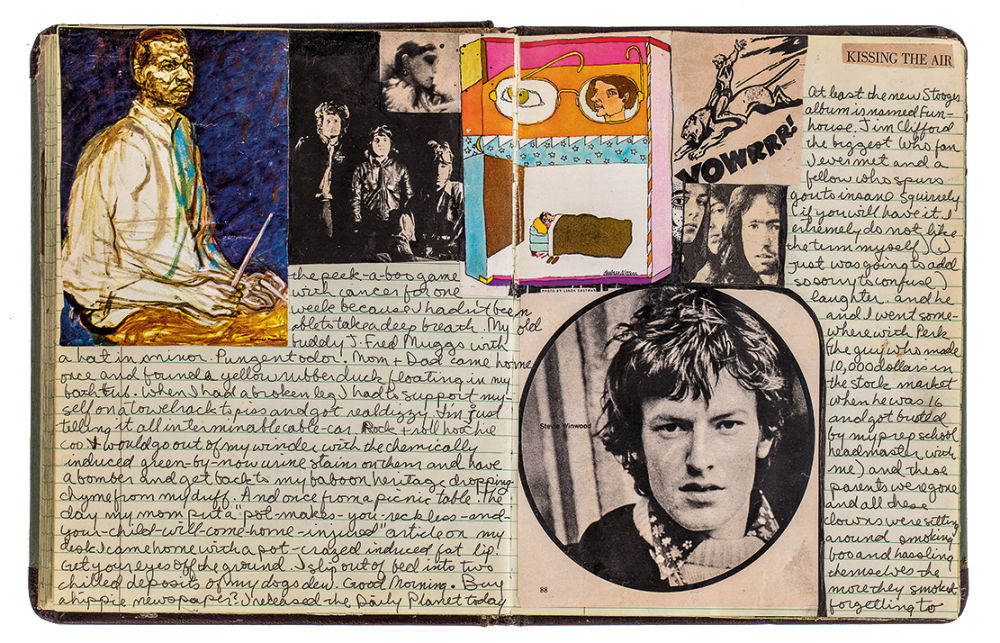 the peek-a-boo game
with cancer for one
week because I hadn't been
able to take a deep breath. My old
buddy J. Fred Muggs with
a hat in minor. Pungent odor! Mom + Dad came home
once and found a yellow rubber duck floating in my
bathtub. When I had a broken leg I had to support my-
self on a towel rack to piss and got real dizzy. I'm just
telling it all interminable cable-car. Rock + roll hoochie
coo. I would go out of my winder with the chemically
induced green-by-now urine stains on them and have
a bomber and get back to my baboon heritage dropping
chyme from my duff. And once from a picnic table. The
day my mom put a "pot-makes-you-reckless-and-
your-child-will-come-home-injured" article on my
desk I came home with a pot-crazed induced fat lip.
Get your eyes off the ground. I slip out of bed into two
chilled deposits of my dogs dew. Good Morning. Buy
a hippie newspaper? I released the Daily Planet today
PHOTO BY LINDA EASTMAN
YOWRRR!
Stevie Winwood
88
KISSING THE AIR
At least the new Stooges
album is named Fun-
house. Jim Clifford
the biggest Who fan
I ever met and a
fellow who spurs
gouts insane squirrely
(if you will have it. I
extremely do not like
the term myself) (I
just was going to add
so sorry to confuse)
laughter. and he
and I went some-
where with Perk
(the guy who made
10,000 dollars in
the stock market
when he was 16
and got busted
by my prep school
headmaster with
me) and these
parents were gone
and all these
clowns were sitting
around smoking
boo and hassling
themselves the
more they smoked
forgetting to